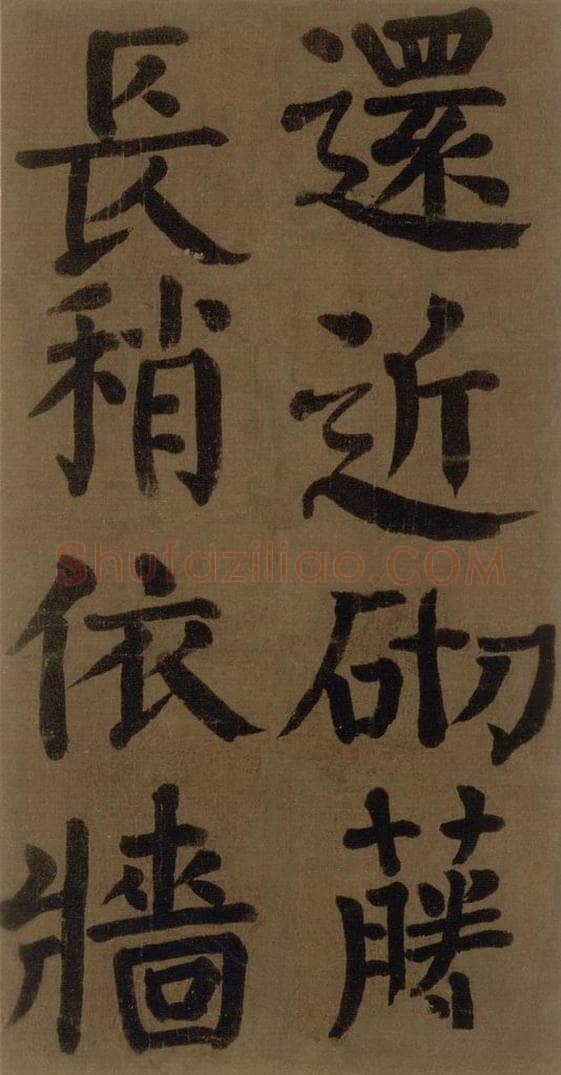 還近砌藤
長稍依牆
Shufaziliao.COM